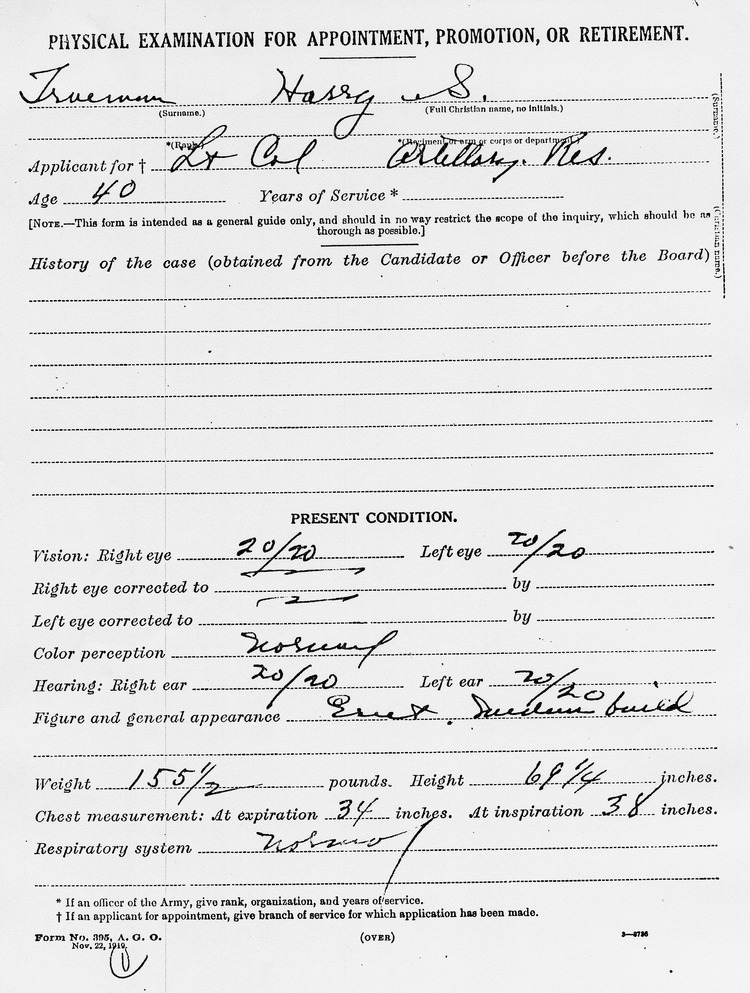 PHYSICAL EXAMINATION FOR APPOINTMENT, PROMOTION, OR RETIREMENT.
Trueman Harry S.
(Surname.) (Full Christian name, no initials.)
*(Rank.) *(Regiment or arm or corps or department.)
Applicant for † Lt Col Artillary. Res.
Age 40 Years of Service *
[NOTE.—This form is intended as a general guide only, and should in no way restrict the scope of the inquiry, which should be as
thorough as possible.]
(Surname.)
(Christian name.)
History of the case (obtained from the Candidate or Officer before the Board)
PRESENT CONDITION.
Vision: Right eye 20/20 Left eye 20/20
Right eye corrected to by
Left eye corrected to by
Color perception Normal
Hearing: Right ear 20/20 Left ear 20/20
Figure and general appearance Erect, Medium build
Weight 155 1/2 pounds. Height 69 1/4 inches.
Chest measurement: At expiration 34 inches. At inspiration 38 inches.
Respiratory system Normal
* If an officer of the Army, give rank, organization, and years of service.
† If an applicant for appointment, give branch of service for which application has been made.
Form No. 395, A. G. O. (OVER) 3—3736
Nov. 22, 1919.
1